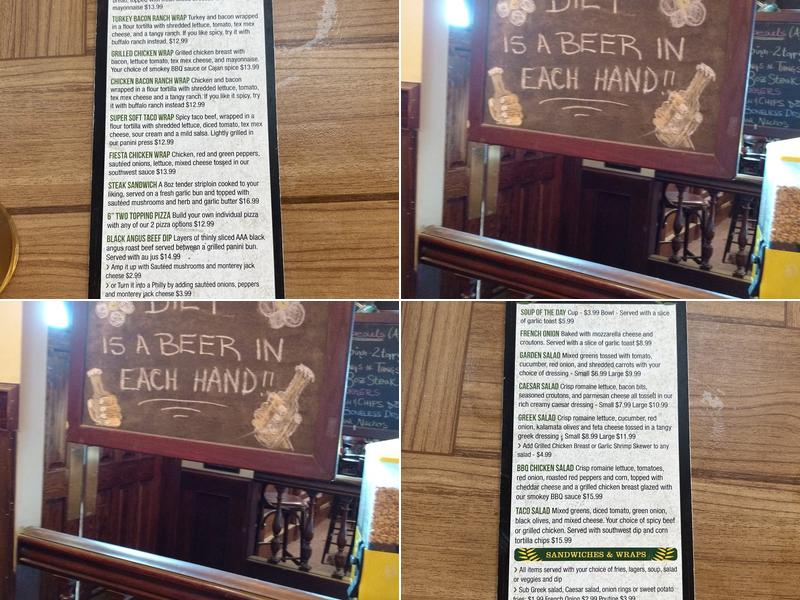 mayonnaise $13.99
TURKEY BACON RANCH WRAP Turkey and bacon wrapped
in a flour tortilla with shredded lettuce, tomato, tex mex
cheese, and a tangy ranch. If you like spicy, try it with
buffalo ranch instead, $12.99
GRILLED CHICKEN WRAP Grilled chicken breast with
bacon, lettuce tomato, tex mex cheese, and mayonnaise.
Your choice of smokey BBQ sauce or Cajan spice $13.99
CHICKEN BACON RANCH WRAP Chicken and bacon
wrapped in a flour tortilla with shredded lettuce, tomato,
tex mex cheese and a tangy ranch. If you like it spicy, try
it with buffalo ranch instead $12.99
SUPER SOFT TACO WRAP Spicy taco beef, wrapped in a
flour tortilla with shredded lettuce, diced tomato, tex mex
cheese, sour cream and a mild salsa. Lightly grilled in
our panini press $12.99
FIESTA CHICKEN WRAP Chicken, red and green peppers,
sautéed onions, lettuce, mixed cheese tossed in our
southwest sauce $13.99
STEAK SANDWICH A 8oz tender striploin cooked to your
liking, served on a fresh garlic bun and topped with
sautéed mushrooms and herb and garlic butter $16.99
6" TWO TOPPING PIZZA Build your own individual pizza
with any of our 2 pizza options $12.99
BLACK ANGUS BEEF DIP Layers of thinly sliced AAA black
angus roast beef served between a grilled panini bun.
Served with au jus $14.99
> Amp it up with Sautéed mushrooms and monterey jack
cheese $2.99
> or Turn it into a Philly by adding sautéed onions, peppers
and monterey jack cheese $3.99
DIET
IS A BEER IN
EACH HAND!!
DIET
IS A BEER IN
EACH HAND!!
SOUP OF THE DAY Cup - $3.99 Bowl - Served with a slice
of garlic toast $5.99
FRENCH ONION Baked with mozzarella cheese and
croutons. Served with a slice of garlic toast $8.99
GARDEN SALAD Mixed greens tossed with tomato,
cucumber, red onion, and shredded carrots with your
choice of dressing - Small $6.99 Large $9.99
CAESAR SALAD Crisp romaine lettuce, bacon bits,
seasoned croutons, and parmesan cheese all tossed in our
rich creamy caesar dressing - Small $7.99 Large $10.99
GREEK SALAD Crisp romaine lettuce, cucumber, red
onion, kalamata olives and feta cheese tossed in a tangy
greek dressing ; Small $8.99 Large $11.99
> Add Grilled Chicken Breast or Garlic Shrimp Skewer to any
salad - $4.99
BBQ CHICKEN SALAD Crisp romaine lettuce, tomatoes,
red onion, roasted red peppers and corn, topped with
cheddar cheese and a grilled chicken breast glazed with
our smokey BBQ sauce $15.99
TACO SALAD Mixed greens, diced tomato, green onion,
black olives, and mixed cheese. Your choice of spicy beef
or grilled chicken. Served with southwest dip and corn
tortilla chips $15.99
SANDWICHES & WRAPS
> All items served with your choice of fries, lagers, soup, salad
or veggies and dip
> Sub Greek salad, Caesar salad, onion rings or sweet potato
fries: $1.99 French Onion $2.99 Poutine $3.99